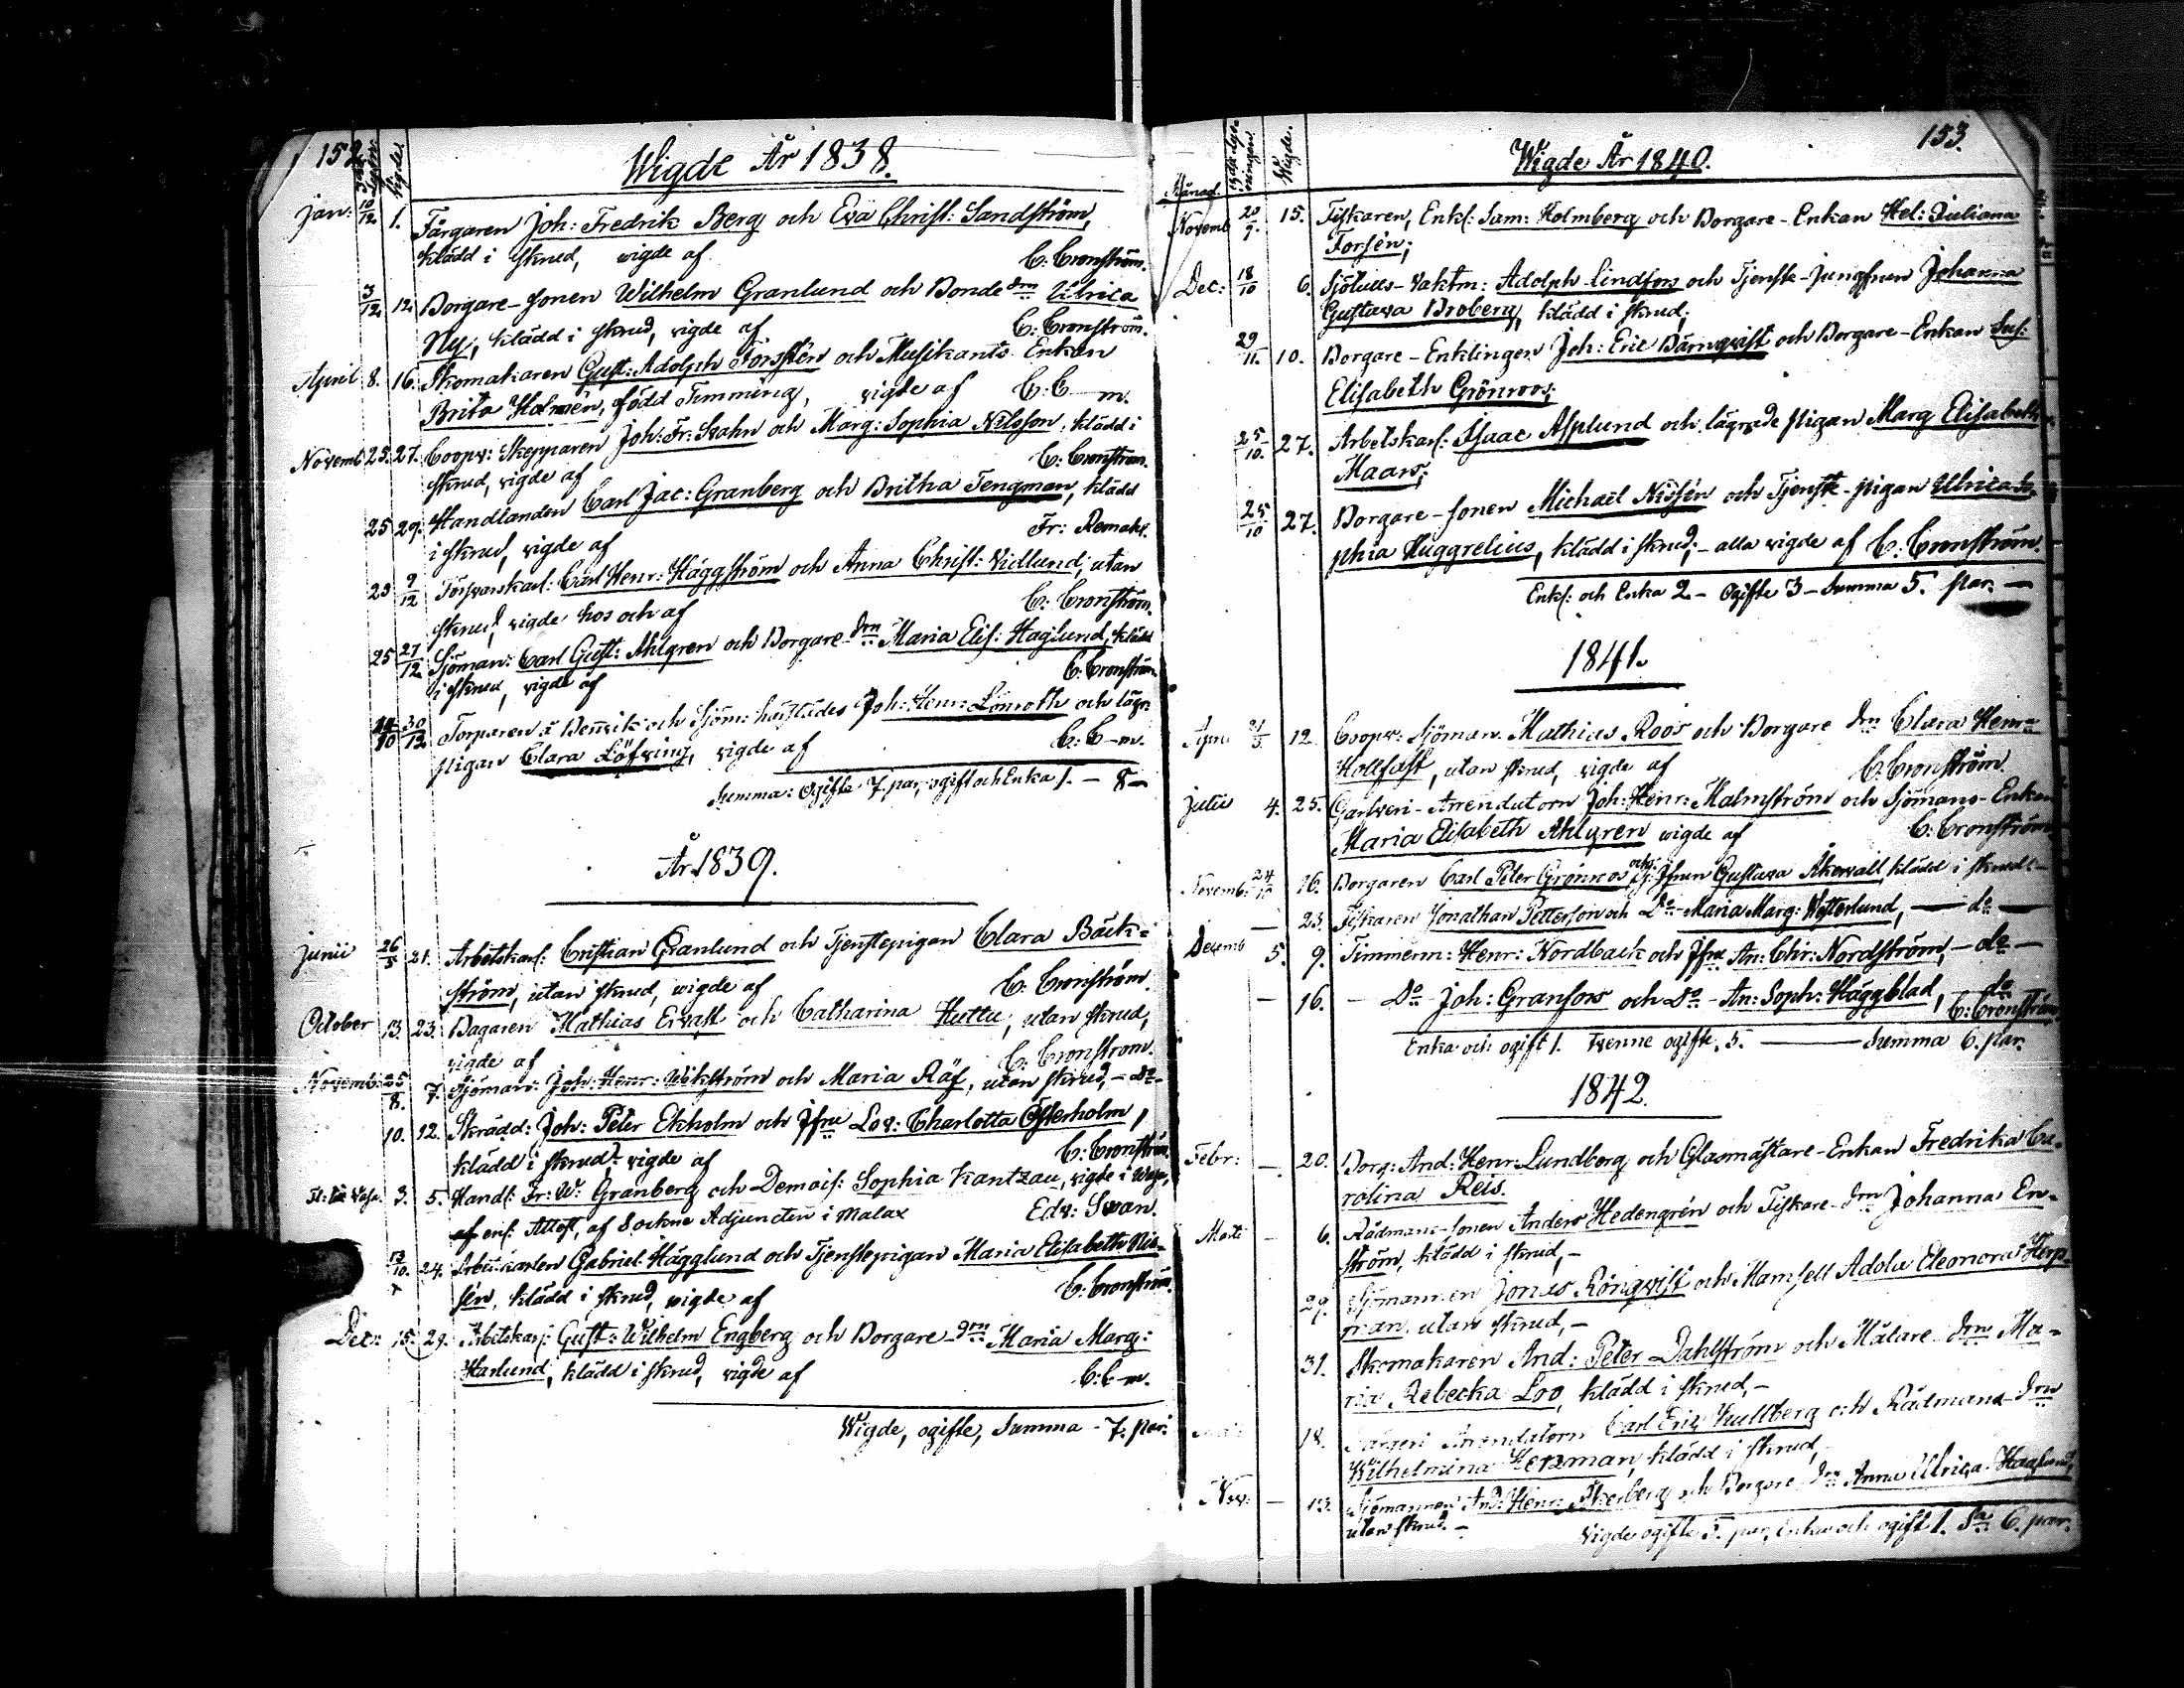 152
Wigde År 1838.
Wigde
Jan: 10/12 1. Färgaren Joh: Fredrik Berg och Eva Christ: Sandström,
klädd i skrud, wigde af C: Cronström.
3/12 12. Borgare-sonen Wilhelm Granlund och Bonde drn Ulrica
Ny, klädd i skrud, wigde af C: Cronström.
April 8. 16. Skomakaren Gust: Adolph Forsstén och Musikants Enkan
Brita Holmén, född Timming, wigde af C: C—m.
Novemb 25. 27. Coopv: Skepparen Joh: Fr: Svahn och Marg: Sophia Nilsson, klädd i
skrud, wigde af C: Cronström.
25 29. Handlanden Carl Jac: Granberg och Britha Tengman, klädd
i skrud, wigde af Fr: Remahl.
23 9/12 Försvarskarl: Carl Henr: Häggström och Anna Christ: Vidlund, utan
skrud, wigde hos och af C: Cronström.
25 27/12 Sjöman: Carl Gust: Ahlgren och Borgare-drn Maria Elis: Haglund, klädd
i skrud, wigde af C: Cronström.
14/10 30/12 Torparen å Benvik och Sjöm: härstädes Joh: Henr: Lönroth och lägr:
pigan Clara Löfving, wigde af C: C—m.
Summa: Ogifte 7. par, ogift och Enka 1. — 8 —
År 1839.
Junii 26/5 21. Arbetskarl: Cristian Granlund och Tjenstepigan Clara Bäck-
ström, utan skrud, wigde af C: Cronström.
October 13. 23. Bagaren Mathias Ervast och Catharina Huttu, utan skrud,
wigde af C: Cronström.
Novemb: 25/8. 7. Sjöman: Joh: Henr: Wikström och Maria Räf, utan skrud, — Do —
10. 12. Skrädd: Joh: Peter Ekholm och Jfru Lov: Charlotta Österholm,
klädd i skrud, wigde af C: Cronström.
3. 5. Handl: Fr: W: Granberg och Demois: Sophia Kantzau, wigde i Wasa,
af enl: Attest, af Sockne Adjuncten i Malax Edv: Svan.
13/10. 24. Arbetskarlen Gabriel Hägglund och Tjenstepigan Maria Elisabeth Nis-
sén, klädd i skrud, wigde af C: Cronström.
Dec: 15. 29. Arbetskarl: Gust: Wilhelm Engberg och Borgare-drn Maria Marg:
Harlund, klädd i skrud, wigde af C: C—m.
Wigde, ogifte, Summa — 7. par:
153.
Wigde År 1840.
Månad. Wigde.
Novemb 20/9. 15. Fiskaren, Enkl: Sam: Holmberg och Borgare-Enkan Hel: Juliana
Forsén;
Dec: 18/10 6. Sjötulls-vaktm: Adolph Lindfors och Tjenste-jungfrun Johanna
Gustava Broberg, klädd i skrud;
29/11. 10. Borgare-Enklingen Joh: Eric Bärnqvist och Borgare-Enkan Sus:
Elisabeth Grönroos;
25/10. 27. Arbetskarl: Isaac Asplund och lägrade pigan Marg Elisabeth
Maars;
25/10 27. Borgare-sonen Michael Nissén och Tjenste-pigan Ulrica So-
phia Huggrelius, klädd i skrud; — alla wigde af C: Cronström.
Enkl: och Enka 2 — Ogifte 3 — Summa 5. par. —
1841.
April 12. Coopv: Sjöman Mathias Roos och Borgare drn Clara Henr:a
Hollfast, utan skrud, wigde af C: Cronström.
Julii 4. 25. Garfveri-Arrendatorn Joh: Henr: Malmström och Sjömans-Enkan
Maria Elisabeth Ahlgren wigde af C: Cronström
Novemb: 24/10 16. Borgaren Carl Peter Grönroos och Jfrun Gustava Åkervall klädd i skrud —
— 23. Fiskaren Jonathan Petterson och Do Maria Marg: Westerlund, — do —
Decemb 5. 9. Timmerm: Henr: Nordback och Jfru An: Chir: Nordström, — do —
— 16. — Do Joh: Granfors och Do An: Soph: Häggblad, — do
C: Cronström.
Enka och ogift 1. Tvenne ogifte, 5. — Summa 6. par.
1842.
Febr: — 20. Borg: And: Henr: Lundberg och Glasmästare-Enkan Fredrika Ca-
rolina Reis.
Marti — 6. Rådmans-sonen Anders Hedengrén och Fiskare-drn Johanna En-
ström, klädd i skrud, —
29. Sjömannen Jonas Rönqvist och Mamsell Adola Eleonora Hesp-
man, utan skrud, —
31. Skomakaren And: Peter Dahlström och Målare drn Ma-
ria Rebecka Loo, klädd i skrud, —
18. Färgeri Arrendatorn Carl Eric Kullberg och Rådmans-drn
Wilhelmina Herzman, klädd i skrud,
Nov: — 13. Sjömannen And: Henr: Åkerberg och Borgare drn Anna Ulrica Haglund,
utan skrud. —
Wigde ogifte 5. par, Enka och ogift 1. Sa 6. par.